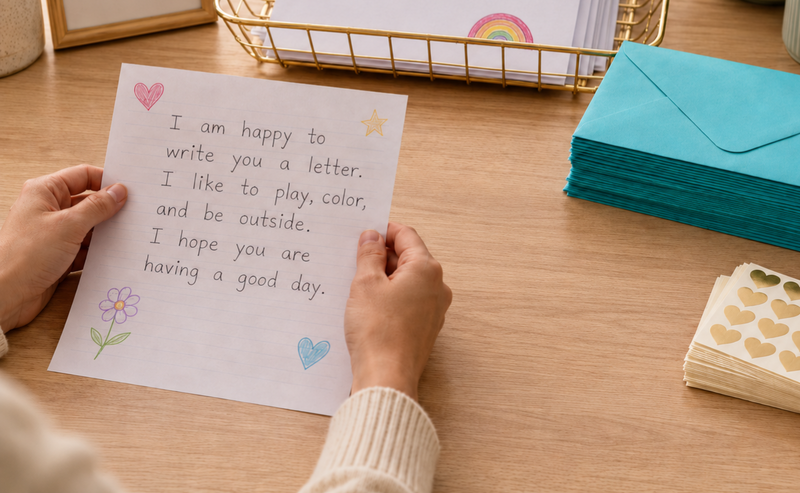 I am happy to
write you a letter.
I like to play, color,
and be outside.
I hope you are
having a good day.